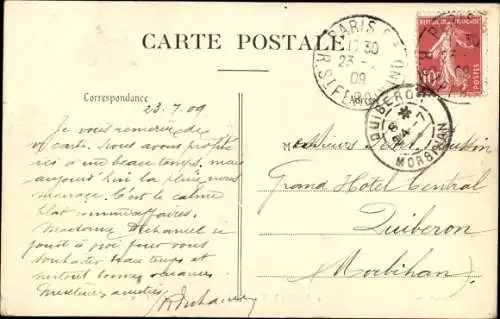 CARTE POSTALE
PARIS
17 30
23
09
R. St FERDINAND
REPUBLIQUE FRANCAISE
10
POSTES
QUIBERON
MORBIHAN
Correspondance
Adresse
23.7.09
Je vous remercie de
v/ carte. Nous avons profité
ici d'un beau temps, mais
aujourd'hui la pluie nous
menage. C'est le calme
plat comme affaires.
Madame Duhamel se
joint à moi pour vous
souhaiter beau temps et
surtout bonnes vacances
amitiés
Duhamel
M
Grand Hotel Central
Quiberon
(Morbihan)